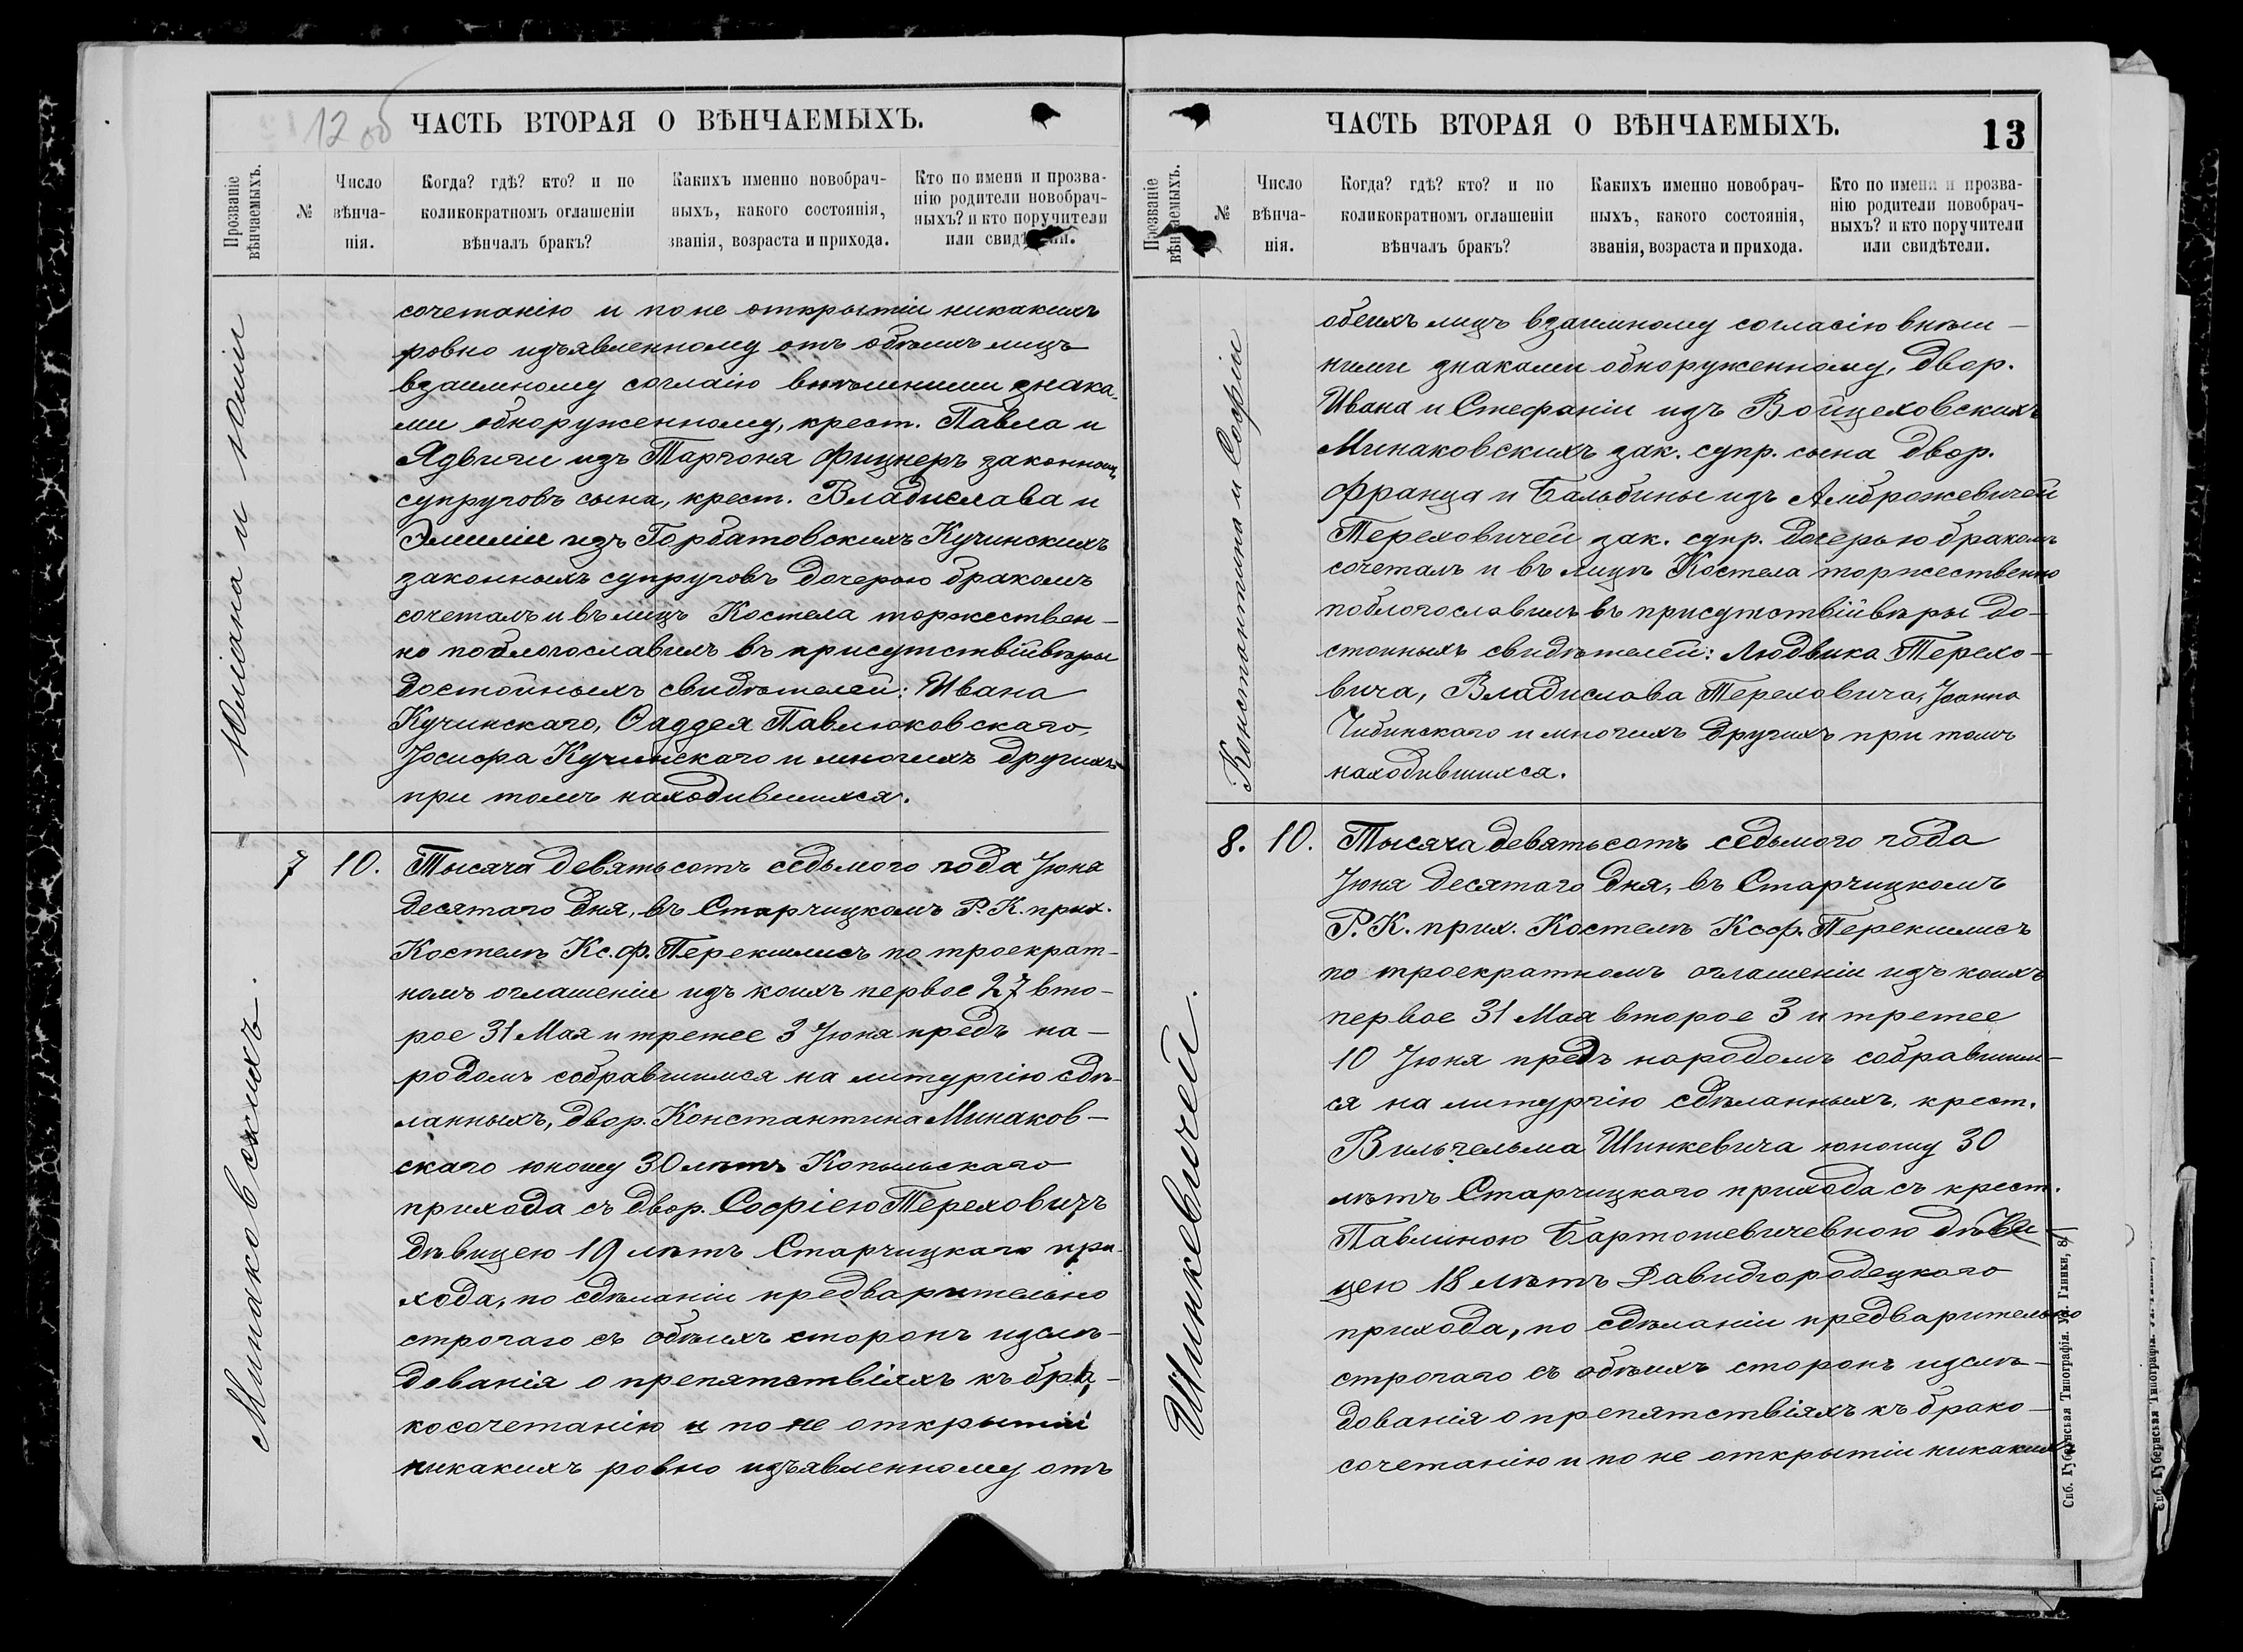 12 об
ЧАСТЬ ВТОРАЯ О ВѢНЧАЕМЫХЪ.
Прозваніе
вѣнчаемыхъ.
№
Число
вѣнча-
нія.
Когда? гдѣ? кто? и по
коликократномъ оглашеніи
вѣнчалъ бракъ?
Какихъ именно новобрач-
ныхъ, какого состоянія,
званія, возраста и прихода.
Кто по имени и прозва-
нію родители новобрач-
ныхъ? и кто поручители
или свидѣтели.
Юліана и Юліи
сочетанію и по не открытіи никакихъ
ровно изъявленному отъ обѣихъ лицъ
взаимному согласію внѣшними знака-
ми обноруженному, крест. Павла и
Ядвиги изъ Таргоня Фицнеръ законныхъ
супруговъ сына, крест. Владислава и
Эмиліи изъ Горбатовскихъ Кучинскихъ
законныхъ супруговъ дочерью бракомъ
сочеталъ и въ лицѣ Костела торжествен-
но поблогославилъ въ присутствіи вѣры
достойныхъ свидѣтелей: Ивана
Кучинскаго, Фаддея Павлюковскаго,
Іосифа Кучинскаго и многихъ другихъ
при томъ находившихся.
Минаковскихъ.
7
10.
Тысяча девятьсотъ седьмого года Іюня
десятаго дня, въ Старчицкомъ Р. К. прих.
Костелѣ Кс. Ф. Перекшлисъ по троекрат-
номъ оглашеніи изъ коихъ первое 27 вто-
рое 31 Мая и третее 3 Іюня предъ на-
родомъ собравшимся на литургію сдѣ-
ланныхъ, двор. Константина Минаков-
скаго юношу 30 лѣтъ Копыльскаго
прихода съ двор. Софіею Тереховичъ
дѣвицею 19 лѣтъ Старчицкаго при-
хода, по сдѣланіи предварительно
строгаго съ обѣихъ сторонъ изслѣ-
дованія о препятствіяхъ къ бра-
косочетанію и по не открытіи
никакихъ ровно изъявленному отъ
ЧАСТЬ ВТОРАЯ О ВѢНЧАЕМЫХЪ.
13
Прозваніе
вѣнчаемыхъ.
№
Число
вѣнча-
нія.
Когда? гдѣ? кто? и по
коликократномъ оглашеніи
вѣнчалъ бракъ?
Какихъ именно новобрач-
ныхъ, какого состоянія,
званія, возраста и прихода.
Кто по имени и прозва-
нію родители новобрач-
ныхъ? и кто поручители
или свидѣтели.
Константина и Софіи
обеихъ лицъ взаимному согласію внѣш-
ними знаками обноруженному, двор.
Ивана и Стефаніи изъ Войцеховскихъ
Минаковскихъ зак. супр. сына двор.
Франца и Бальбины изъ Амброжевичей
Тереховичей зак. супр. дочерью бракомъ
сочеталъ и въ лицѣ Костела торжественно
поблогославилъ въ присутствіи вѣры до-
стоиныхъ свидѣтелей: Людвика Терехо-
вича, Владислава Тереховича, Іоанна
Чибинскаго и многихъ другихъ при томъ
находившихся.
Шинкевичей.
8.
10.
Тысяча девятьсотъ седьмого года
Іюня десятаго дня, въ Старчицкомъ
Р. К. прих. Костелѣ Ксф. Перекшлисъ
по троекратномъ оглашеніи изъ коихъ
первое 31 Мая второе 3 и третее
10 Іюня предъ народомъ собравшим-
ся на литургію сдѣланныхъ, крест.
Вильгельма Шинкевича юношу 30
лѣтъ Старчицкаго прихода съ крест.
Павлиною Бартошевичевною дѣви-
цею 18 лѣтъ Давидгородецкаго
прихода, по сдѣланіи предварительно
строгаго съ обѣихъ сторонъ изслѣ-
дованія о препятствіяхъ къ брако-
сочетанію и по не открытіи никакихъ
Спб. Губернская Типографія. Ул. Глинки, 8.